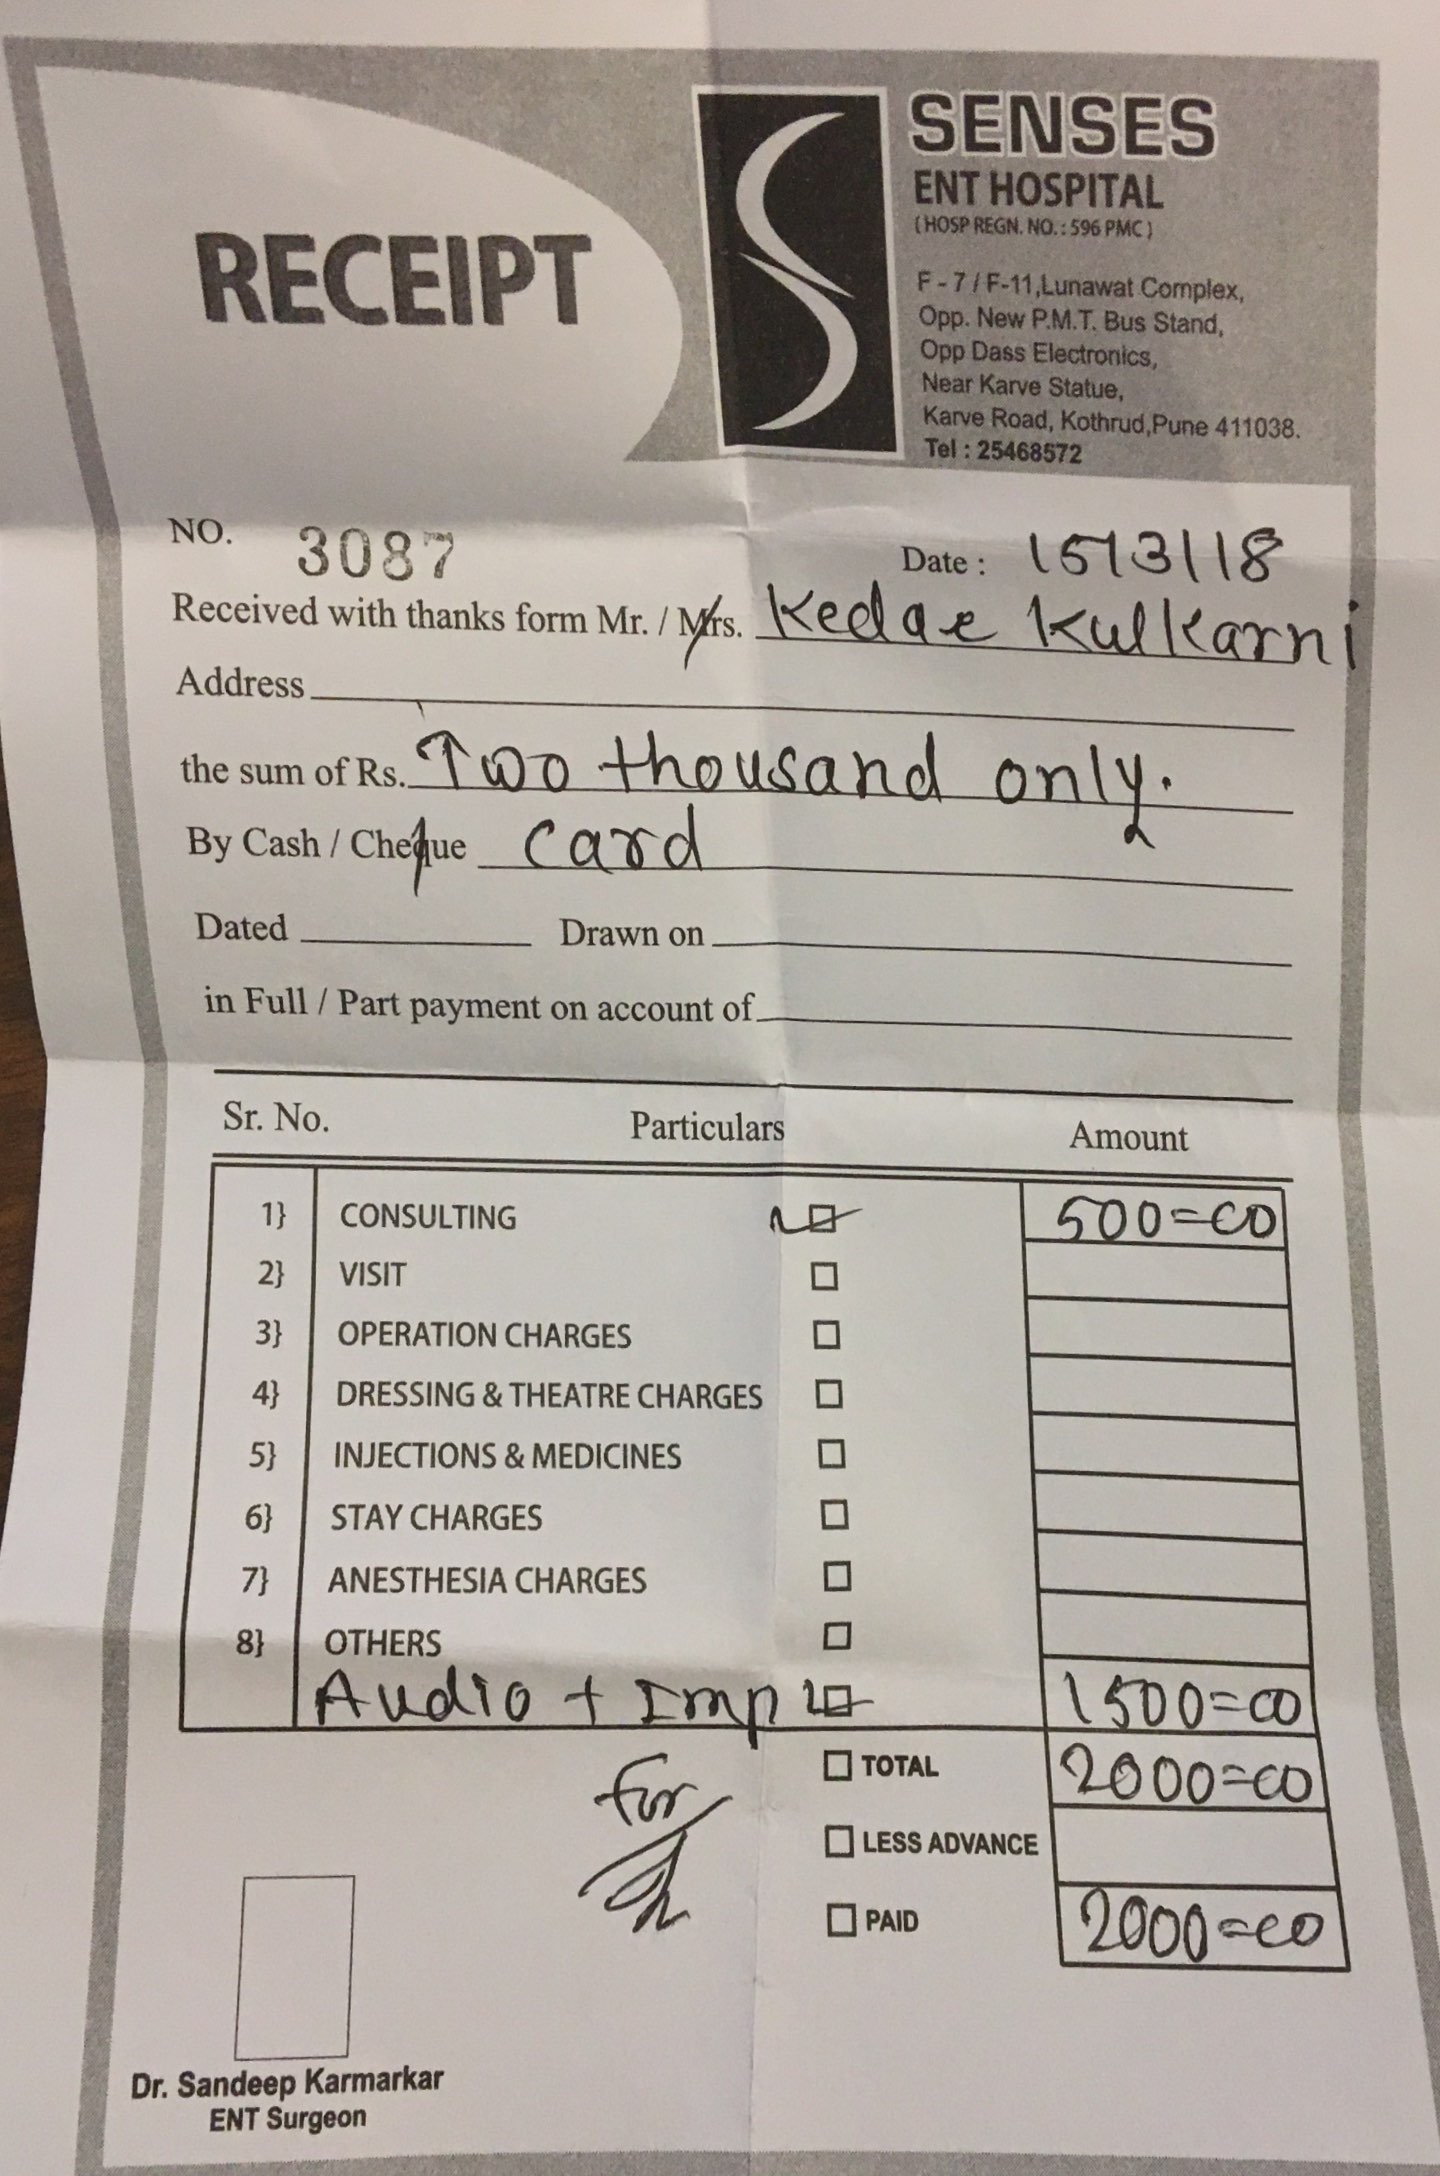 RECEIPT
SENSES
ENT HOSPITAL
(HOSP REGN. NO. : 596 PMC)
F - 7 / F-11,Lunawat Complex,
Opp. New P.M.T. Bus Stand,
Opp Dass Electronics,
Near Karve Statue,
Karve Road, Kothrud,Pune 411038.
Tel : 25468572
NO. 3087 Date : 15/3/18
Received with thanks form Mr. / Mrs. Kedar Kulkarni
Address
the sum of Rs. Two thousand only.
By Cash / Cheque card
Dated Drawn on
in Full / Part payment on account of
Sr. No. Particulars Amount
1} CONSULTING 500=00
2} VISIT
3} OPERATION CHARGES
4} DRESSING & THEATRE CHARGES
5} INJECTIONS & MEDICINES
6} STAY CHARGES
7} ANESTHESIA CHARGES
8} OTHERS
Audio + Imp 1500=00
TOTAL 2000=00
For
LESS ADVANCE
PAID 2000=00
Dr. Sandeep Karmarkar
ENT Surgeon